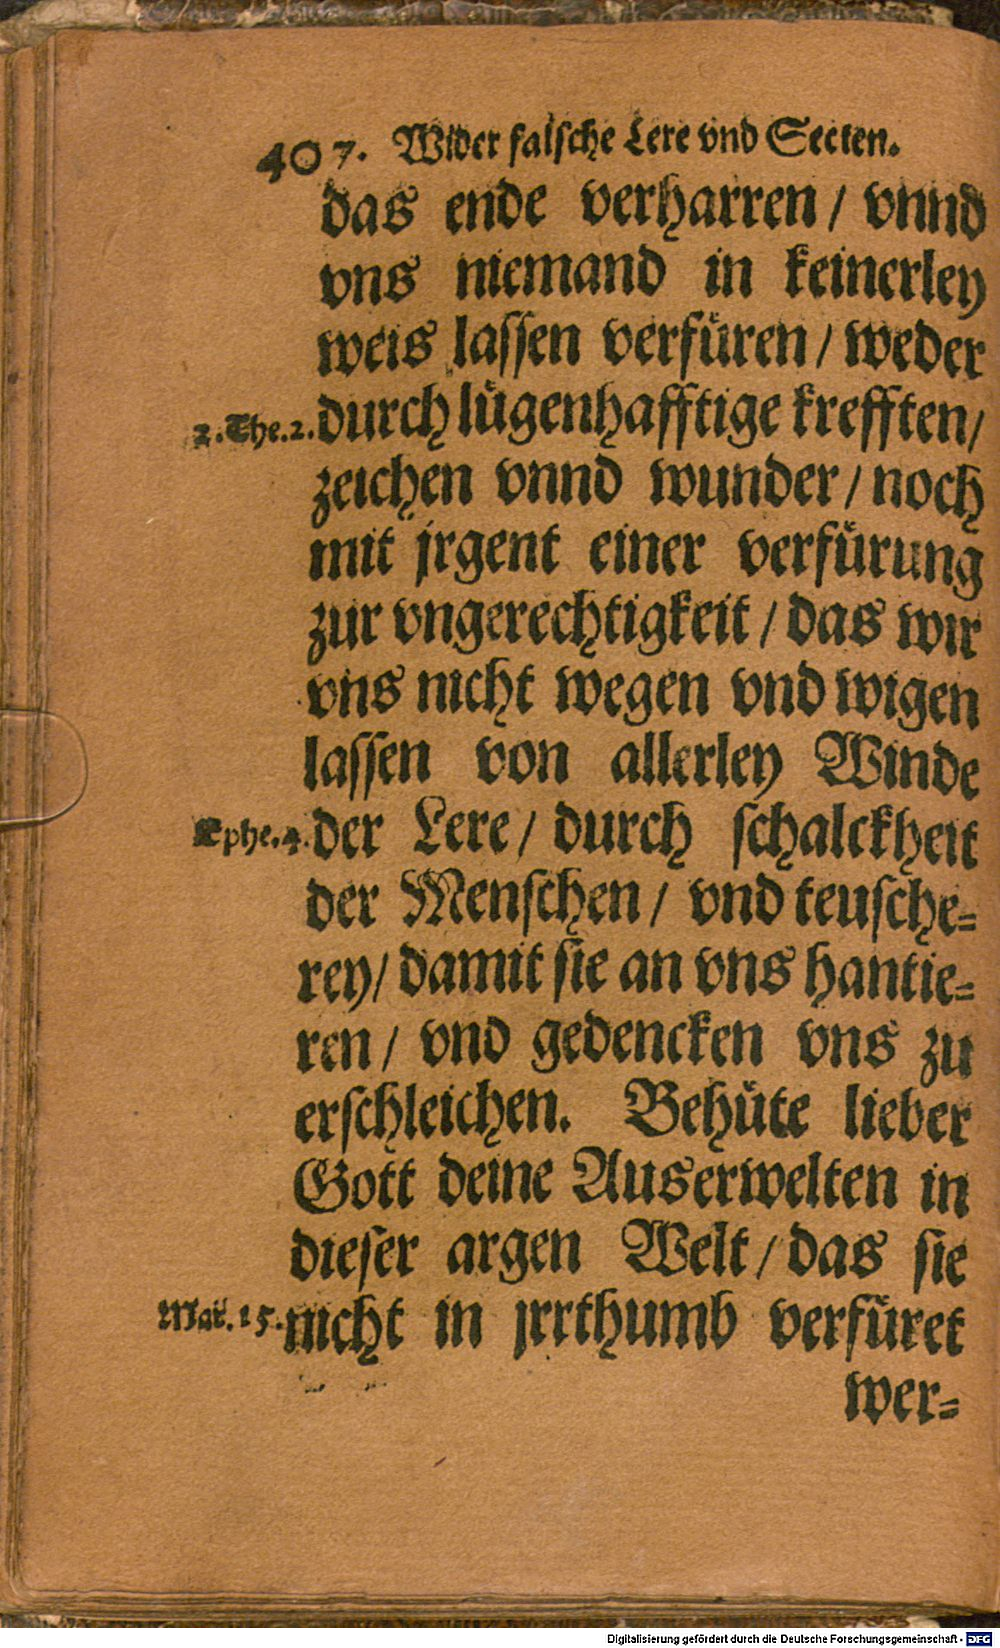 407. Wider falsche Lere vnd Secten.
das ende verharren / vnnd
vns niemand in keinerley
weis lassen verfüren / weder
2. The. 2. durch lügenhafftige krefften /
zeichen vnnd wunder / noch
mit jrgent einer verfürung
zur vngerechtigkeit / das wir
vns nicht wegen vnd wigen
lassen von allerley Winde
Ephe. 4. der Lere / durch schalckheit
der Menschen / vnd teusche=
rey / damit sie an vns hantie=
ren / vnd gedencken vns zu
erschleichen. Behüte lieber
Gott deine Auserwelten in
dieser argen Welt / das sie
Mat. 15. nicht in jrrthumb verfüret
wer=
Digitalisierung gefördert durch die Deutsche Forschungsgemeinschaft - DFG